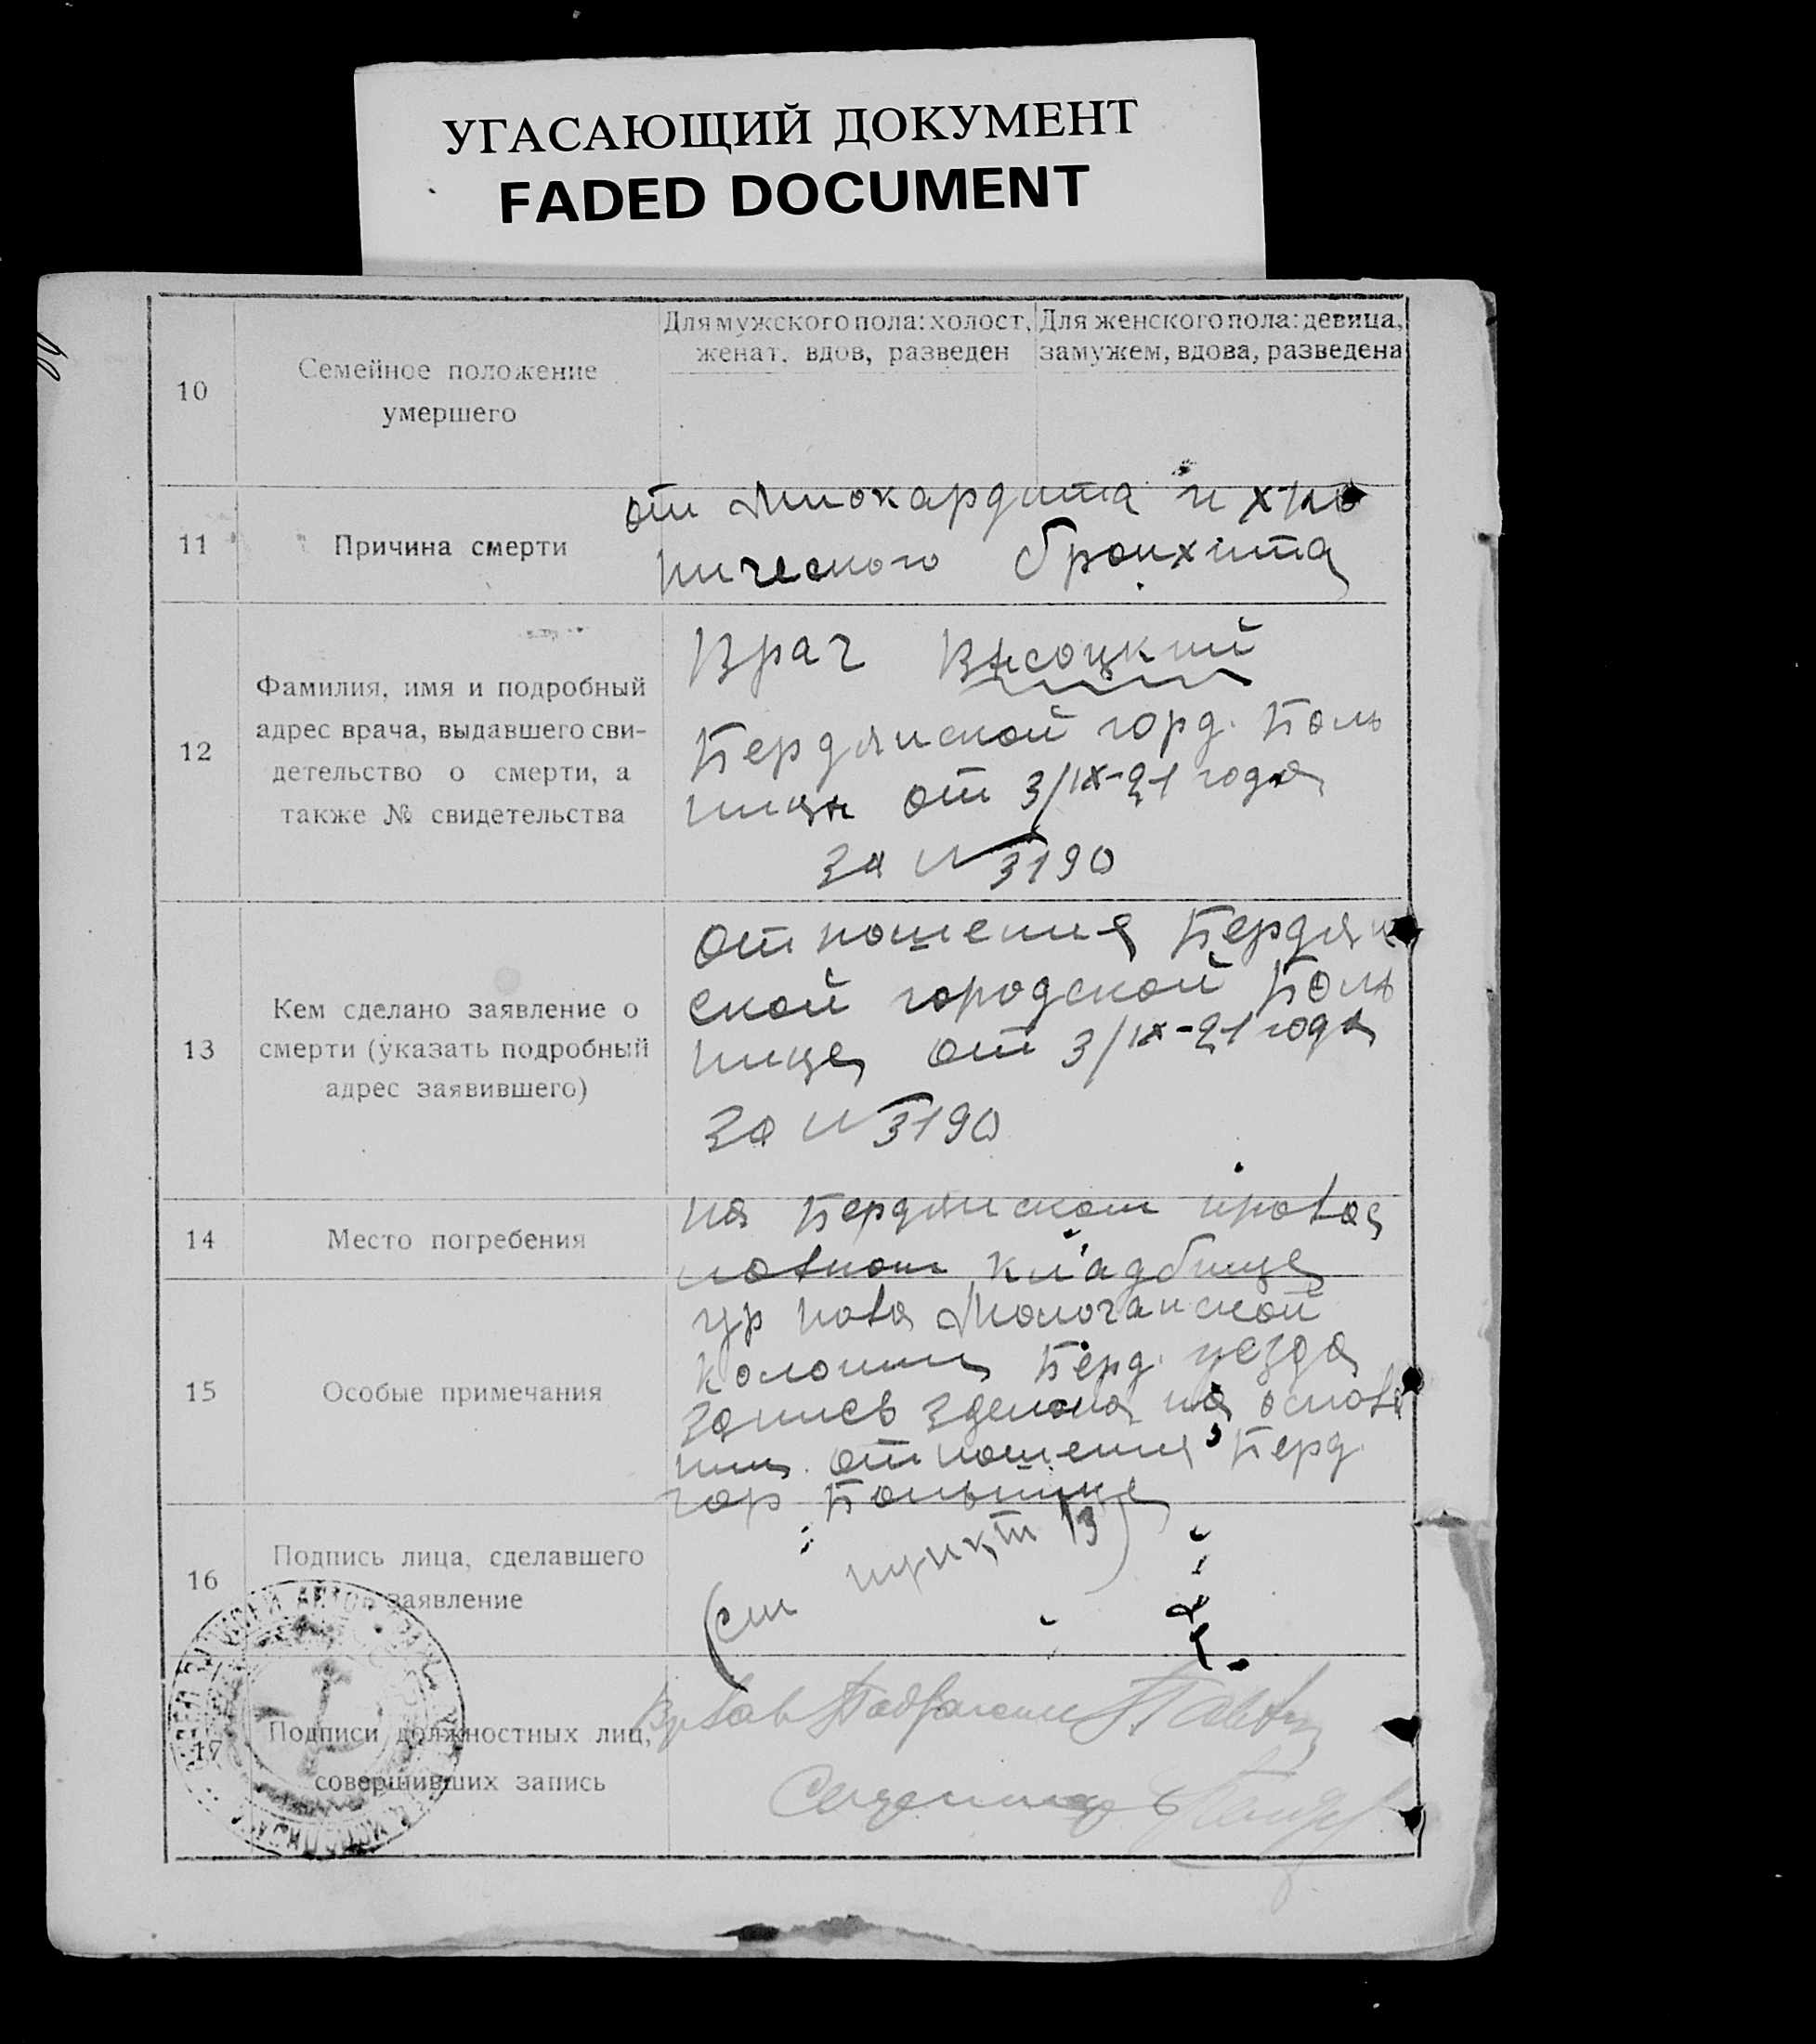 УГАСАЮЩИЙ ДОКУМЕНТ
FADED DOCUMENT
10
Семейное положение
умершего
Для мужского пола: холост,
женат, вдов, разведен
Для женского пола: девица,
замужем, вдова, разведена
11
Причина смерти
от Миокардита и хро
нического бронхита
12
Фамилия, имя и подробный
адрес врача, выдавшего сви-
детельство о смерти, а
также № свидетельства
Врач Высоцкий
Бердянской горд. Боль
ницы от 3/IX-21 года
за № 3190
13
Кем сделано заявление о
смерти (указать подробный
адрес заявившего)
отношения Бердян
ской городской Боль
нице от 3/IX-21 года
за № 3190
14
Место погребения
на Бердянском провос
лавном кладбище
15
Особые примечания
гр Ново Молочанской
колонии Берд. уезда
запись зделана на основа
нии отношения Берд.
гор Больнице
16
Подпись лица, сделавшего
заявление
(см пункт 13)
17
Подписи должностных лиц,
совершивших запись